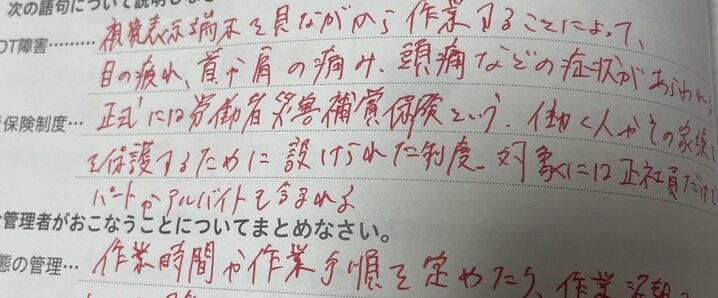 次の語句について説明しなさ
DT障害………視覚表示端末を見ながら作業することによって、
目の疲れ、首や肩の痛み、頭痛などの症状があらわれ
保険制度…正式には労働者災害補償保険という。働く人やその家族
を保護するために設けられた制度。対象には正社員だけで
パートやアルバイトも含まれる
管理者がおこなうことについてまとめなさい。
態の管理…作業時間や作業手順を定めたり、作業